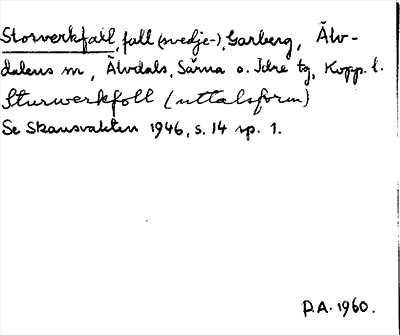 Storverkfall, fall (svedje-), Garberg, Älv-
dalens sn, Älvdals, Särna o. Idre tg, Kopp. l.
Sturwerkfoll (uttalsform)
Se Skansvakten 1946, s. 14 sp. 1.
D.A. 1960.